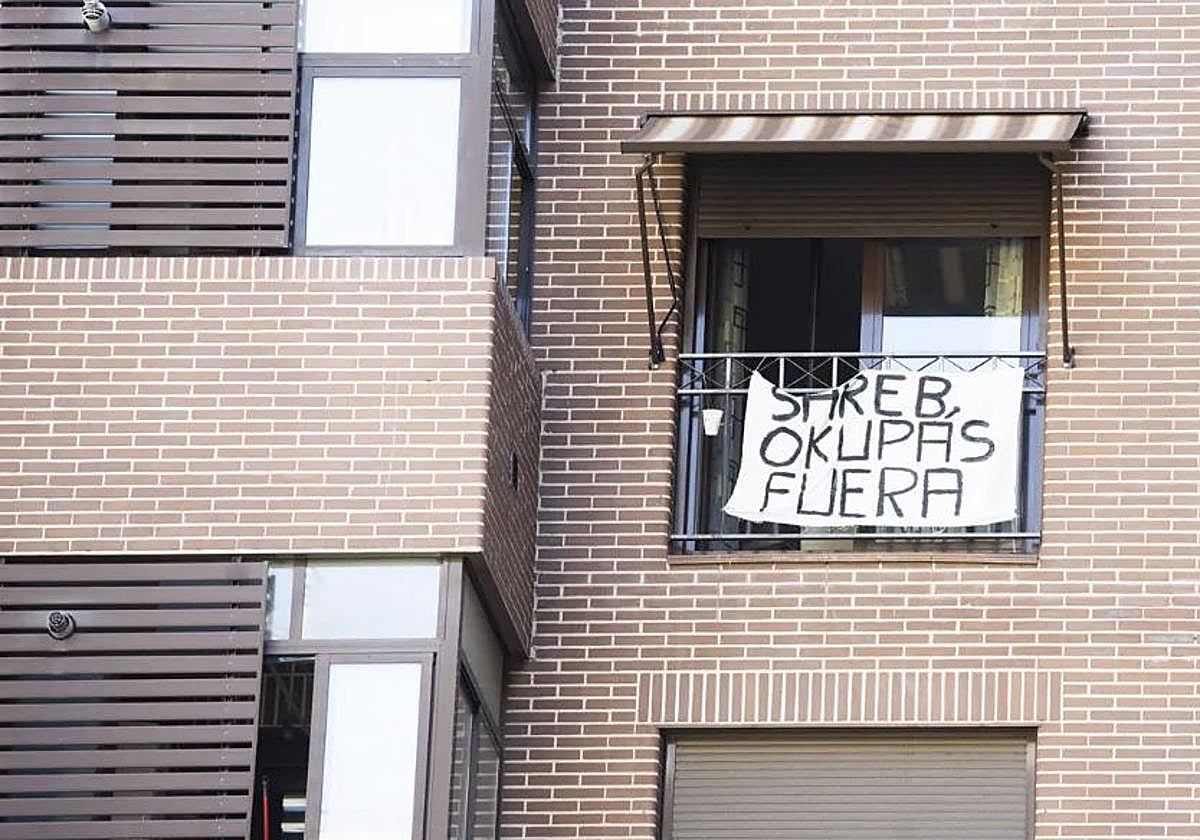 SAREB,
OKUPAS
FUERA